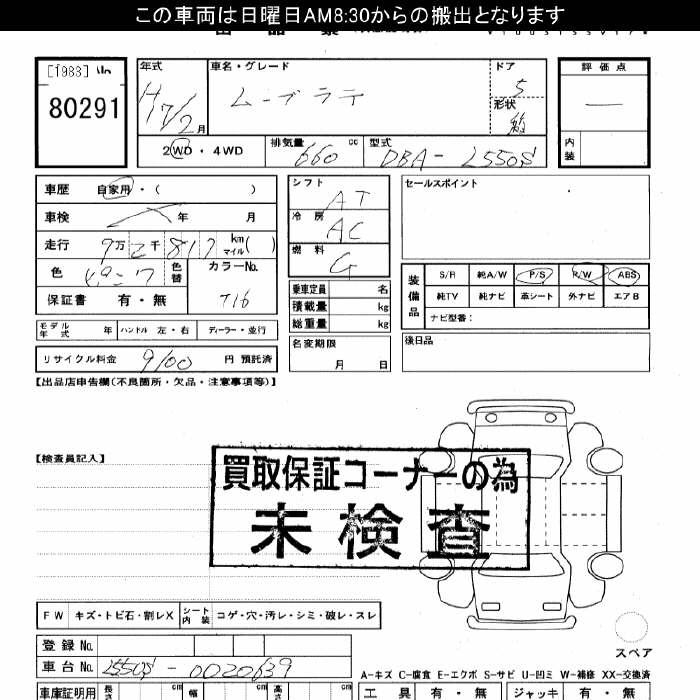 この車両は日曜日AM8:30からの搬出となります
[1983]
80291
年式
H17/2月
車名・グレード
ムーブラテ
ドア
5
形状
評価点
内装
2WD・4WD
排気量 660 cc
型式 DBA-L550S
車歴 自家用・( )
車検 年 月
走行 9万2千817 km マイル( )
色 ピンク 色替
カラーNo. T16
保証書 有・無
シフト AT
冷房 AC
燃料 G
乗車定員 名
積載量 kg
総重量 kg
名変期限 月 日
セールスポイント
装備品
S/R 純A/W P/S P/W ABS
純TV 純ナビ 革シート 外ナビ エアB
ナビ型番:
後日品
モデル年式 年 ハンドル 左・右 ディーラー・並行
リサイクル料金 9100 円 預託済
【出品店申告欄(不良箇所・欠品・注意事項等)】
【検査員記入】
買取保証コーナーの為
未検査
FW キズ・トビ石・割レX シート内装 コゲ・穴・汚レ・シミ・破レ・スレ
スペア
登録No.
車台No. L550S-0020639
A-キズ C-腐食 E-エクボ S-サビ U-凹ミ W-補修 XX-交換済
車庫証明用 長さ cm 幅 cm 高さ cm
工具 有・無 ジャッキ 有・無